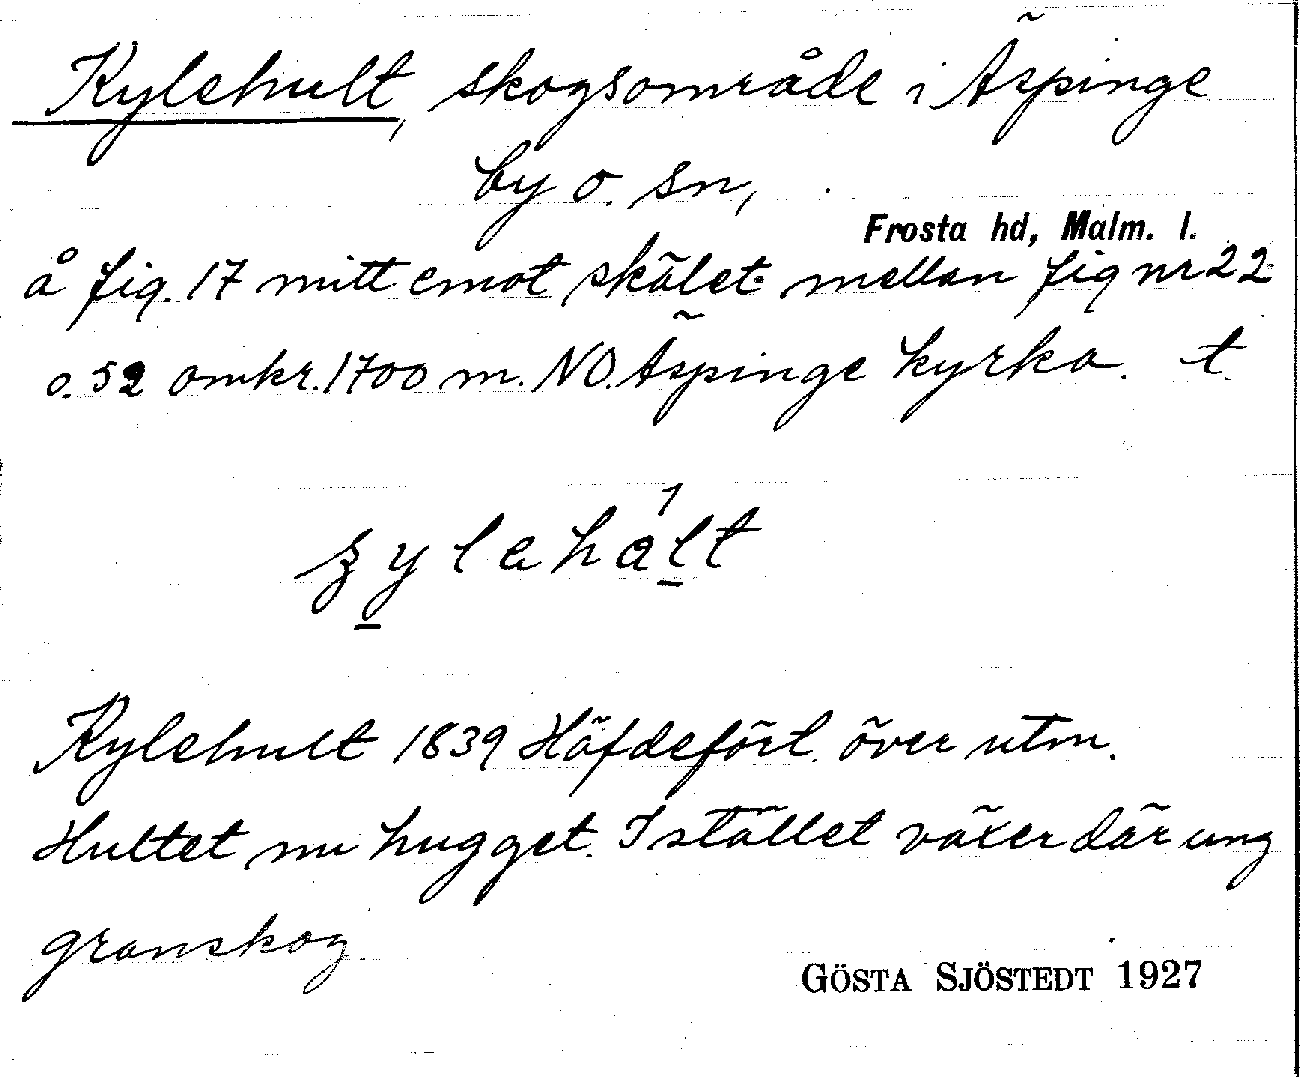 Kylehult, skogsområde i Äspinge
by o. sn,
Frosta hd, Malm. l.
å fig. 17 mitt emot skälet mellan fig nr 22
o. 52 omkr. 1700 m. NO. Äspinge kyrka. t.
Kylehult 1839 Häfdeförl. över utm.
Hultet nu hugget. I stället växer där ung
granskog
GÖSTA SJÖSTEDT 1927